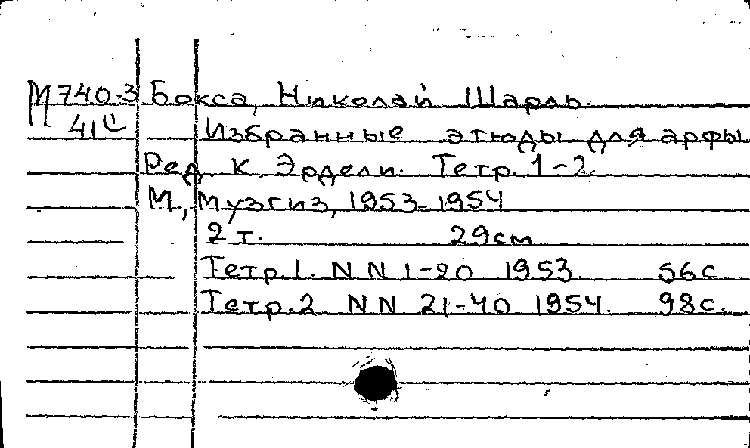 М740-3 Бокса, Николай Шарль.
41ц Избранные этюды для арфы
Ред. К. Эрдели. Тетр. 1-2.
М., Музгиз, 1953-1954
2 т. 29см
Тетр.1. N N 1-20 1953. 56с.
Тетр.2 N N 21-40 1954. 98с.